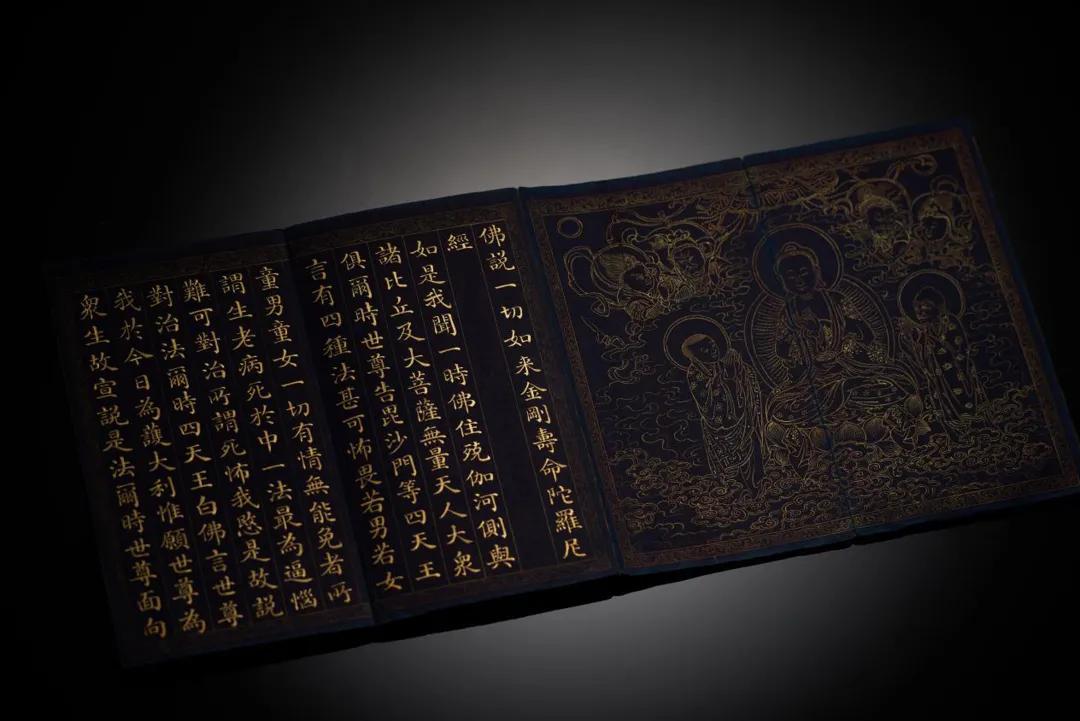 佛説一切如来金剛壽命陀羅尼
經
如是我聞一時佛住殑伽河側與
諸比丘及大菩薩無量天人大衆
俱爾時世尊告毘沙門等四天王
言有四種法甚可怖畏若男若女
童男童女一切有情無能免者所
謂生老病死於中一法最為逼惱
難可對治所謂死怖我愍是故説
對治法爾時四天王白佛言世尊
我於今日為護大利惟願世尊為
衆生故宣説是法爾時世尊面向